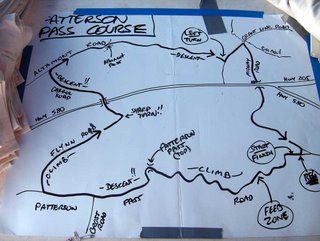 PATTERSON
PASS COURSE
ALTAMONT
ROAD
ALTAMONT
PASS
DESCENT
LEFT
TURN
GRANT LINE ROAD
CANAL
MIDWAY
ROAD
HWY 205
DESCENT!!
CARROLL
ROAD
HWY 580
HWY 580
SHARP
TURN!!
FLYNN ROAD
CLIMB
PATTERSON
PASS
(TOP)
START
FINISH
CLIMB
DESCENT!!
PATTERSON
PASS
ROAD
CROSS
ROAD
FEED
ZONE